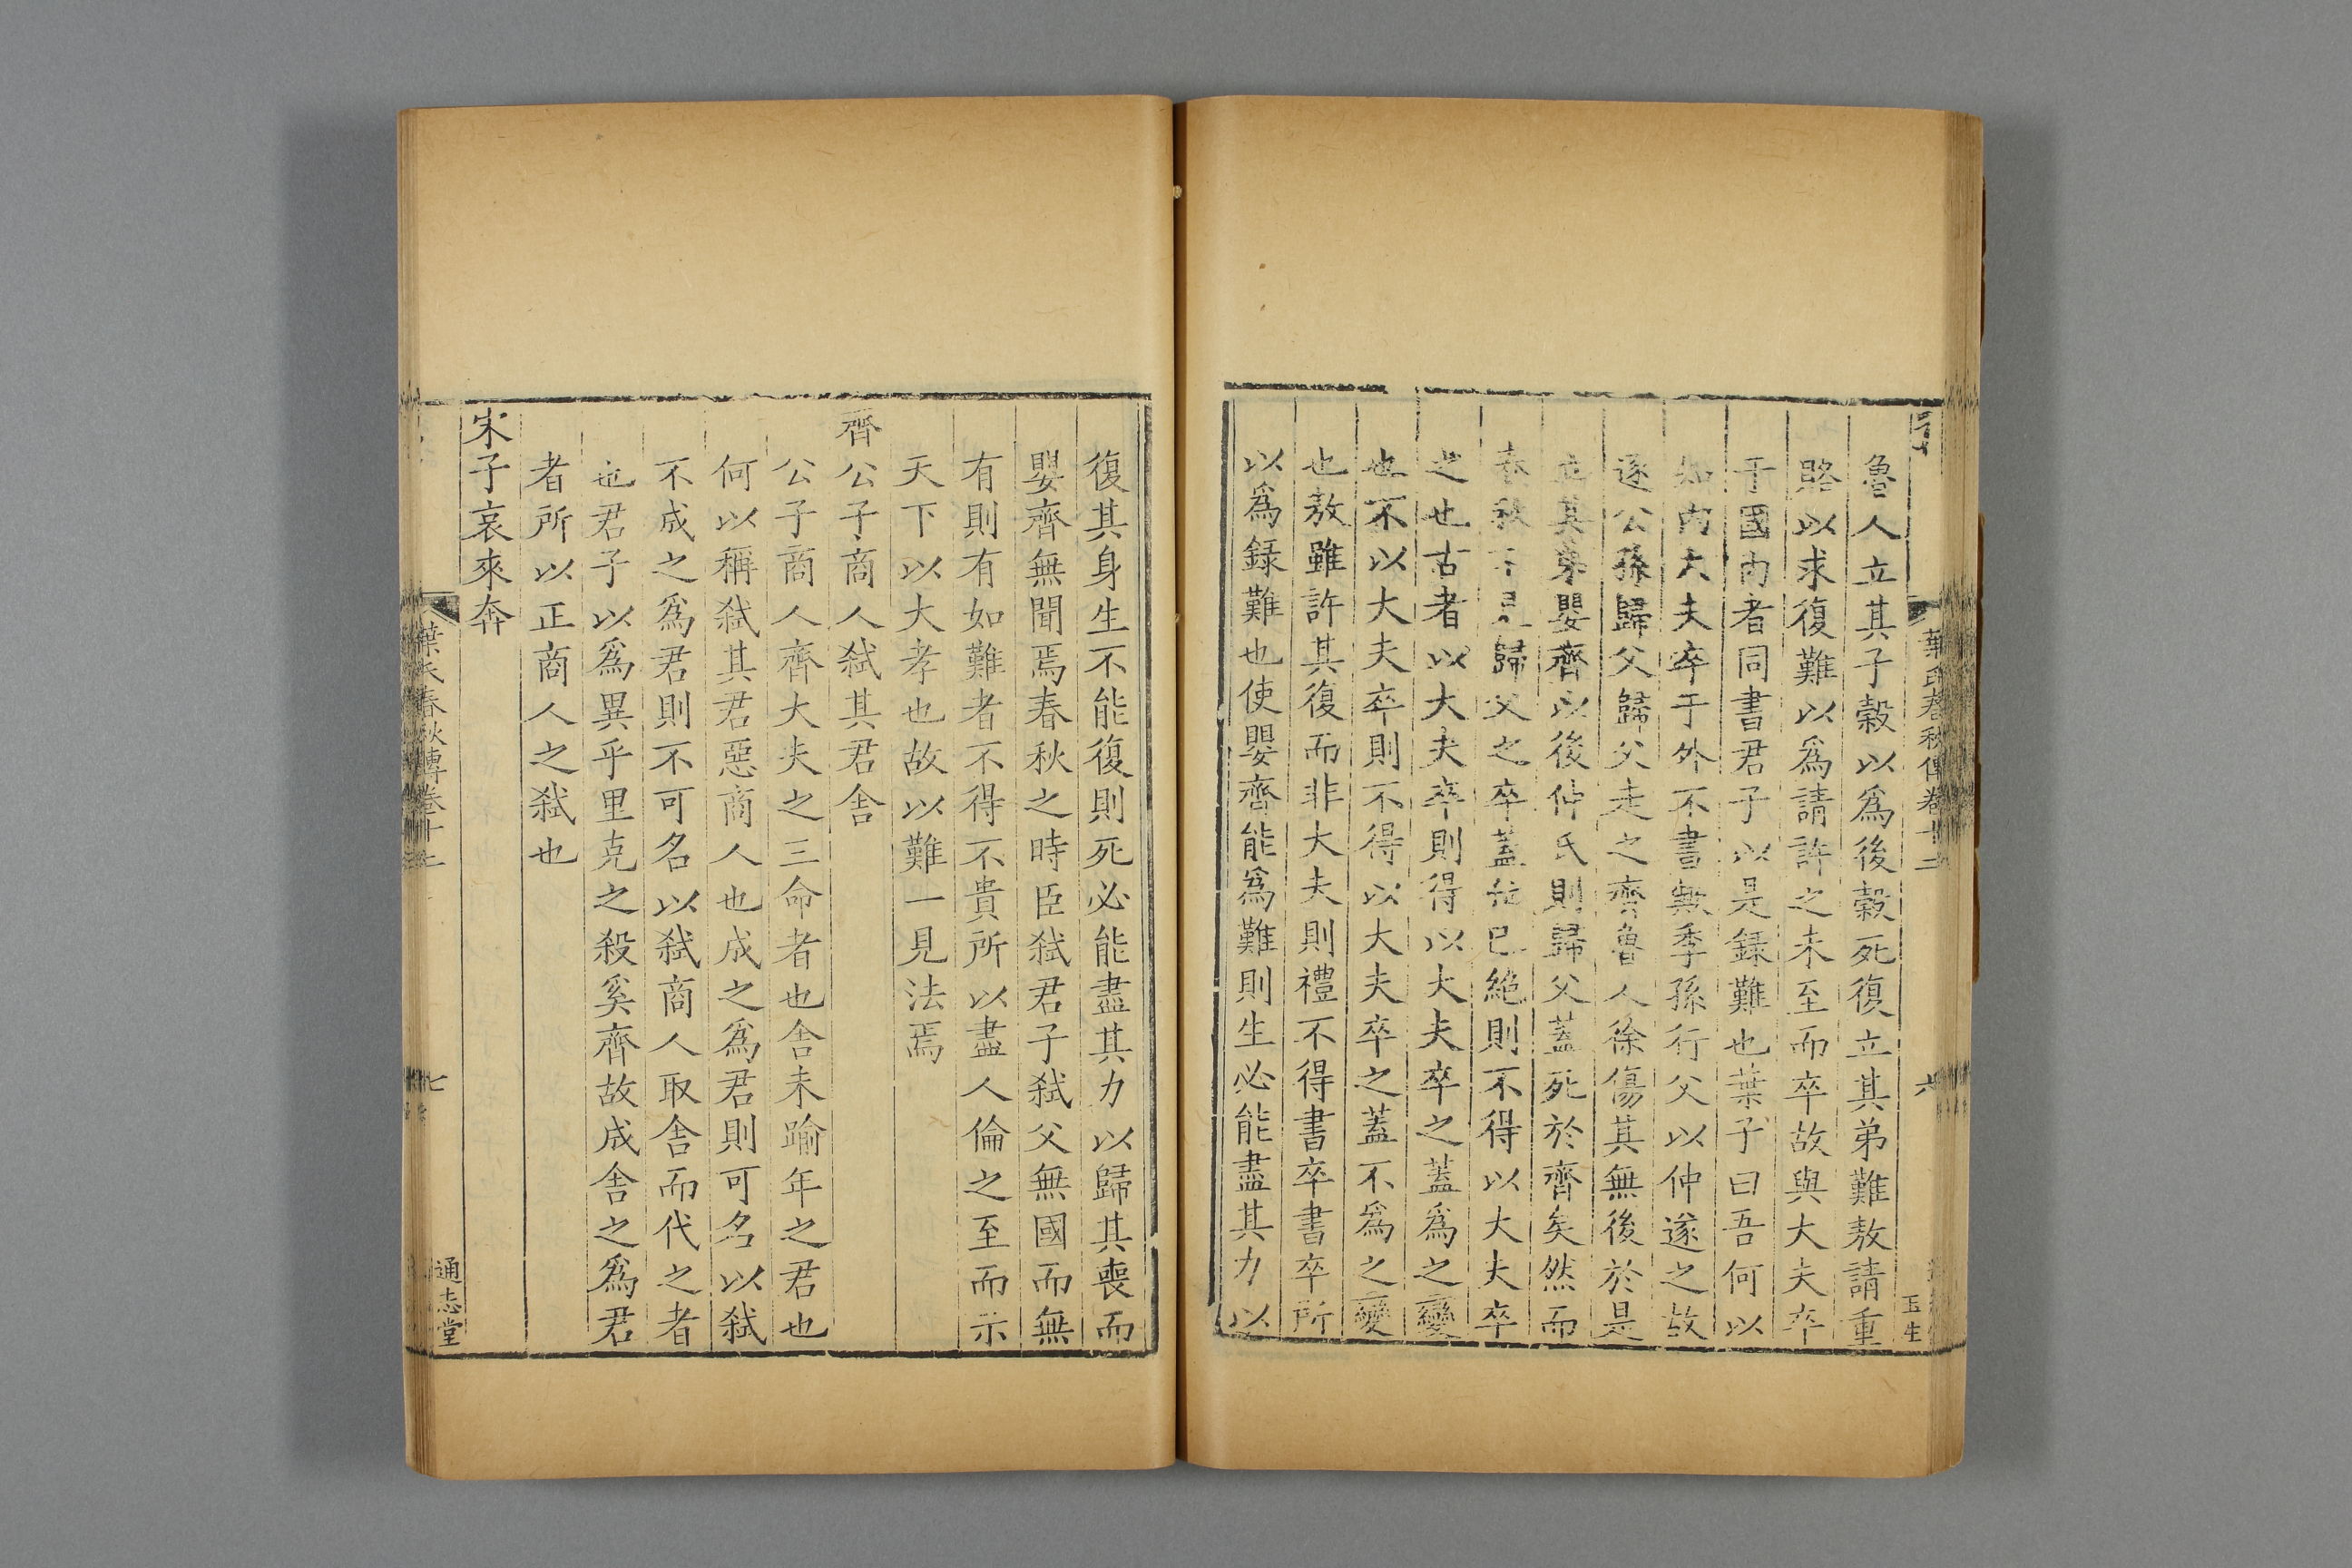 葉氏春秋傳卷十二
六
玉生
魯人立其子穀以為後穀死復立其弟難敖請重
賂以求復難以為請許之未至而卒故與大夫卒
于國內者同書君子以是録難也葉子曰吾何以
知內大夫卒于外不書無季孫行父以仲遂之故
逐公孫歸父歸父走之齊魯人徐傷其無後於是
立其弟嬰齊以後仲氏則歸父蓋死於齊矣然而
春秋不見歸父之卒蓋位已絶則不得以大夫卒
之也古者以大夫卒則得以大夫卒之蓋為之變
也不以大夫卒則不得以大夫卒之蓋不為之變
也敖雖許其復而非大夫則禮不得書卒書卒所
以為録難也使嬰齊能為難則生必能盡其力以
復其身生不能復則死必能盡其力以歸其喪而
嬰齊無聞焉春秋之時臣弑君子弑父無國而無
有則有如難者不得不貴所以盡人倫之至而示
天下以大孝也故以難一見法焉
齊公子商人弑其君舎
公子商人齊大夫之三命者也舎未踰年之君也
何以稱弑其君惡商人也成之為君則可名以弑
不成之為君則不可名以弑商人取舎而代之者
也君子以為異乎里克之殺奚齊故成舎之為君
者所以正商人之弑也
宋子哀來奔
葉氏春秋傳卷十二
七
通志堂